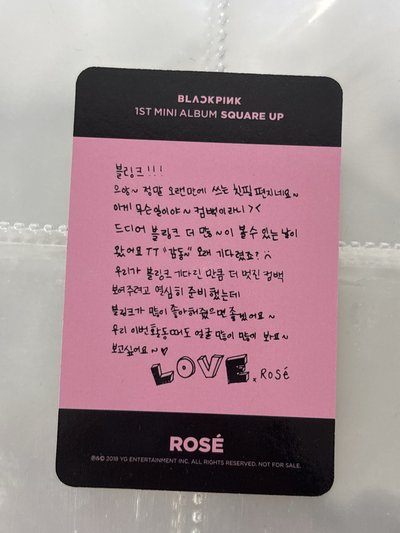 BLACKPINK
1ST MINI ALBUM SQUARE UP
블링크!!!
으앙~ 정말 오랜만에 쓰는 친필 편지네요~
이게 무슨일이야~ 컴백이라니 ><
드디어 블링크 더 많~이 볼 수 있는 날이
왔어요 TT "감동~" 오래 기다렸죠?
우리가 블링크 기다린 만큼 더 멋진 컴백
보여주려고 열심히 준비했는데
블링크가 많이 좋아해줬으면 좋겠어요~
우리 이번 활동때도 얼굴 많이 많이 봐요~
보고싶어요~♡
LOVE x Rosé
ROSÉ
℗&© 2018 YG ENTERTAINMENT INC. ALL RIGHTS RESERVED. NOT FOR SALE.